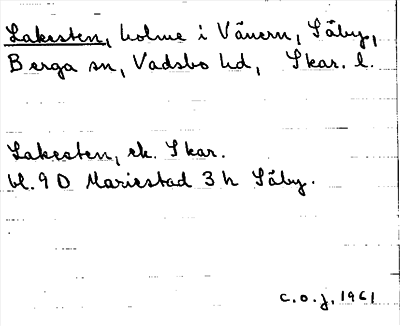 Lakesten, holme i Vänern, Säby,
Berga sn, Vadsbo hd, Skar. l.
Lakesten, ek. Skar.
bl. 9 D Mariestad 3 h Säby.
c.o.j. 1961